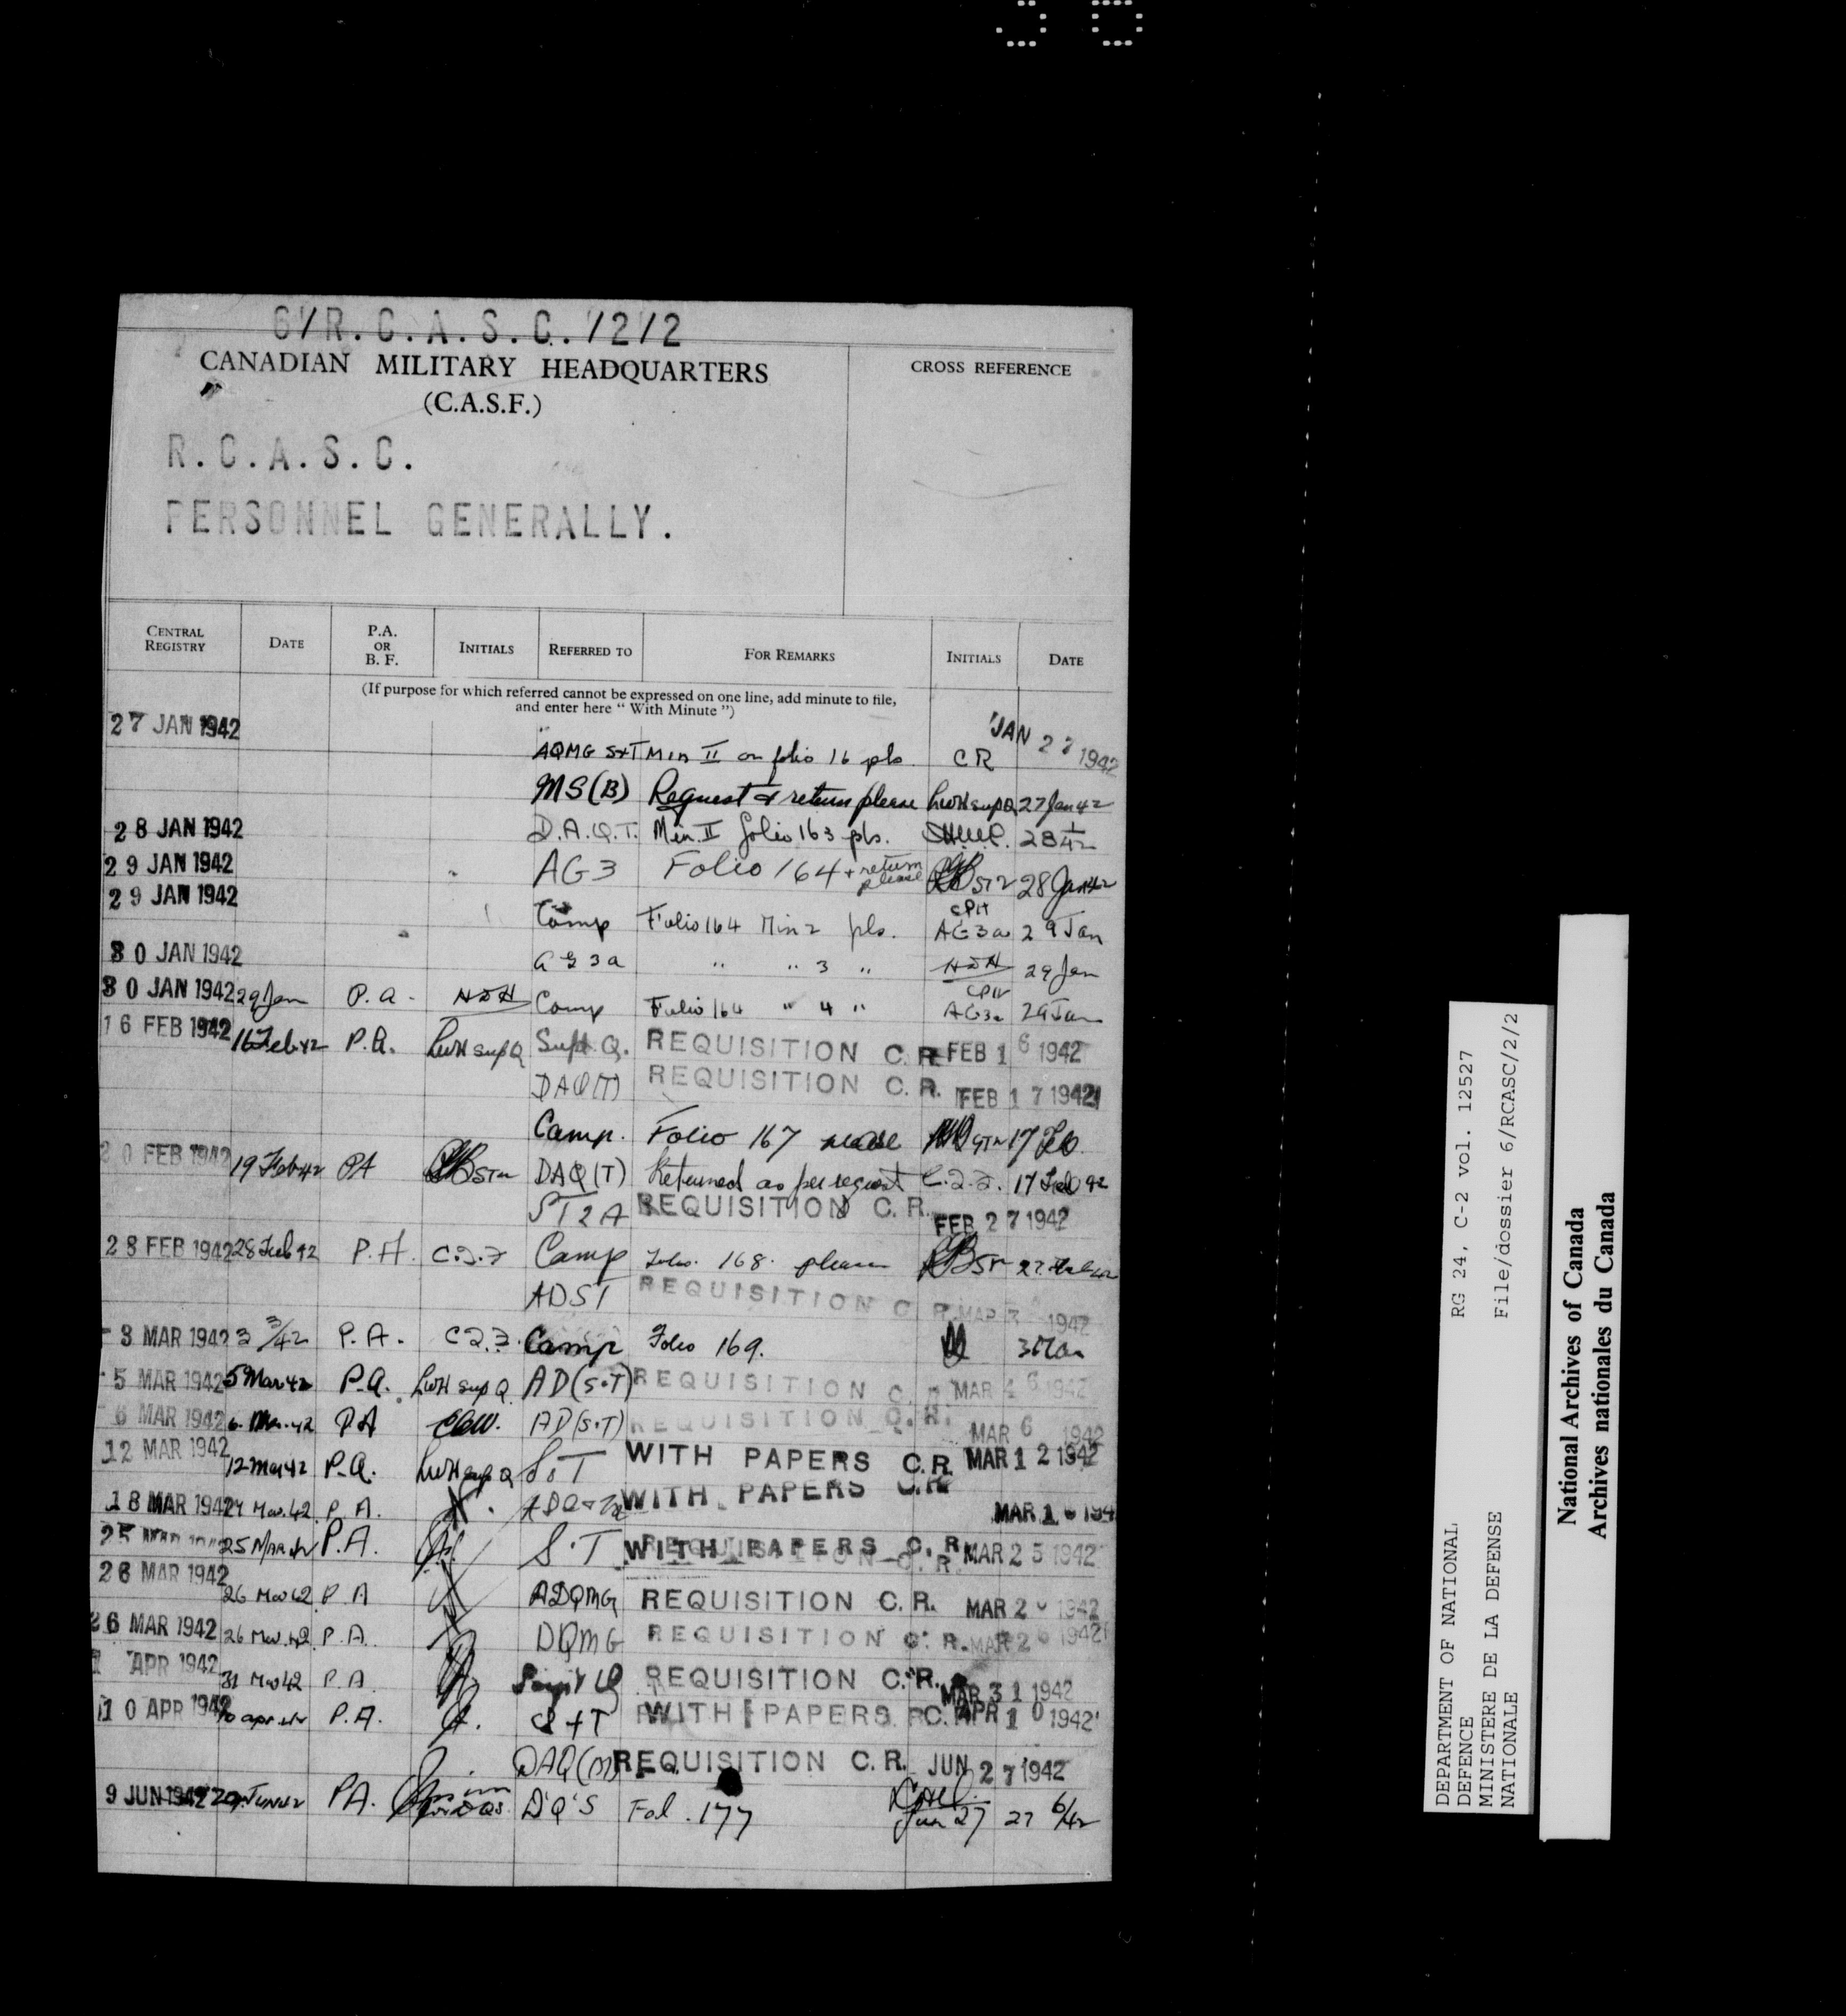 6/R.C.A.S.C./2/2
CANADIAN MILITARY HEADQUARTERS
(C.A.S.F.)
CROSS REFERENCE
R.C.A.S.C.
PERSONNEL GENERALLY.
CENTRAL REGISTRY DATE P.A. OR B. F. INITIALS REFERRED TO FOR REMARKS INITIALS DATE
(If purpose for which referred cannot be expressed on one line, add minute to file,
and enter here “ With Minute ”)
27 JAN 1942
AQMG S+T Min II on folio 16 pls. CR JAN 27 1942
MS(B) Request & return please LWH supQ 27 Jan 42
28 JAN 1942 D.A.Q.T. Min. II folio 163 pls. 28 1/42
29 JAN 1942 AG3 Folio 164 + return please ST2 28 Jan 42
29 JAN 1942 Comp Folio 164 Min 2 pls. AG3a 29 Jan
30 JAN 1942 AG3a " " 3 " HDH 29 Jan
30 JAN 1942 29 Jan P.A. HDH Comp Folio 164 " 4 " AG3a 29 Jan
16 FEB 1942 16 Feb 42 P.A. LWH sup Q Supt. Q. REQUISITION C.R. FEB 16 1942
DAQ(T) REQUISITION C.R. FEB 17 1942
Comp. Folio 167 17 Feb.
20 FEB 1942 19 Feb 42 PA DAQ(T) Returned as per request C.2.7. 17 Feb 42
ST2A REQUISITION C.R. FEB 27 1942
28 FEB 1942 28 Feb 42 P.A. C.2.7 Comp Folio. 168. please 27 Feb 42
ADST REQUISITION C.R. MAR 3 1942
3 MAR 1942 3 3/42 P.A. C.2.7. Comp Folio 169. 3 Mar
5 MAR 1942 5 Mar 42 P.A. LWH sup Q AD(S.T) REQUISITION C.R. MAR 1942
6 MAR 1942 6. Mar. 42 P.A AD(S.T) REQUISITION C.R. MAR 6 1942
12 MAR 1942 12 Mar 42 P.A. LWH sup Q S.T WITH PAPERS C.R. MAR 12 1942
18 MAR 1942 24 Mar. 42. P.A. WITH PAPERS C.R.
25 MAR 25 Mar 42 P.A. S.T WITH PAPERS C.R. MAR 25 1942
26 MAR 1942 26 Mar 42. P.A ADQMG REQUISITION C.R. MAR 26 1942
26 MAR 1942 26 Mar 42. P.A. DQMG REQUISITION C.R. MAR 26 1942
1 APR 1942 31 Mar 42 P.A. REQUISITION C.R. MAR 31 1942
10 APR 1942 10 Apr 42 P.A. S+T WITH PAPERS C.R. APR 10 1942
DAQ(M) REQUISITION C.R. JUN 27 1942
9 JUN 1942 P.A. D'Q'S Fol. 177 Jun 27 27 6/42
DEPARTMENT OF NATIONAL DEFENCE
MINISTERE DE LA DEFENSE NATIONALE
RG 24, C-2 vol. 12527
File/dossier 6/RCASC/2/2
National Archives of Canada
Archives nationales du Canada